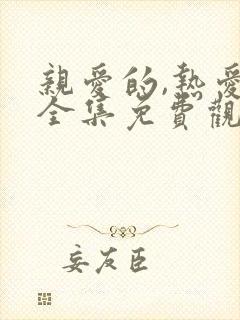 親愛的,熱愛
全集免費觀
妄友臣